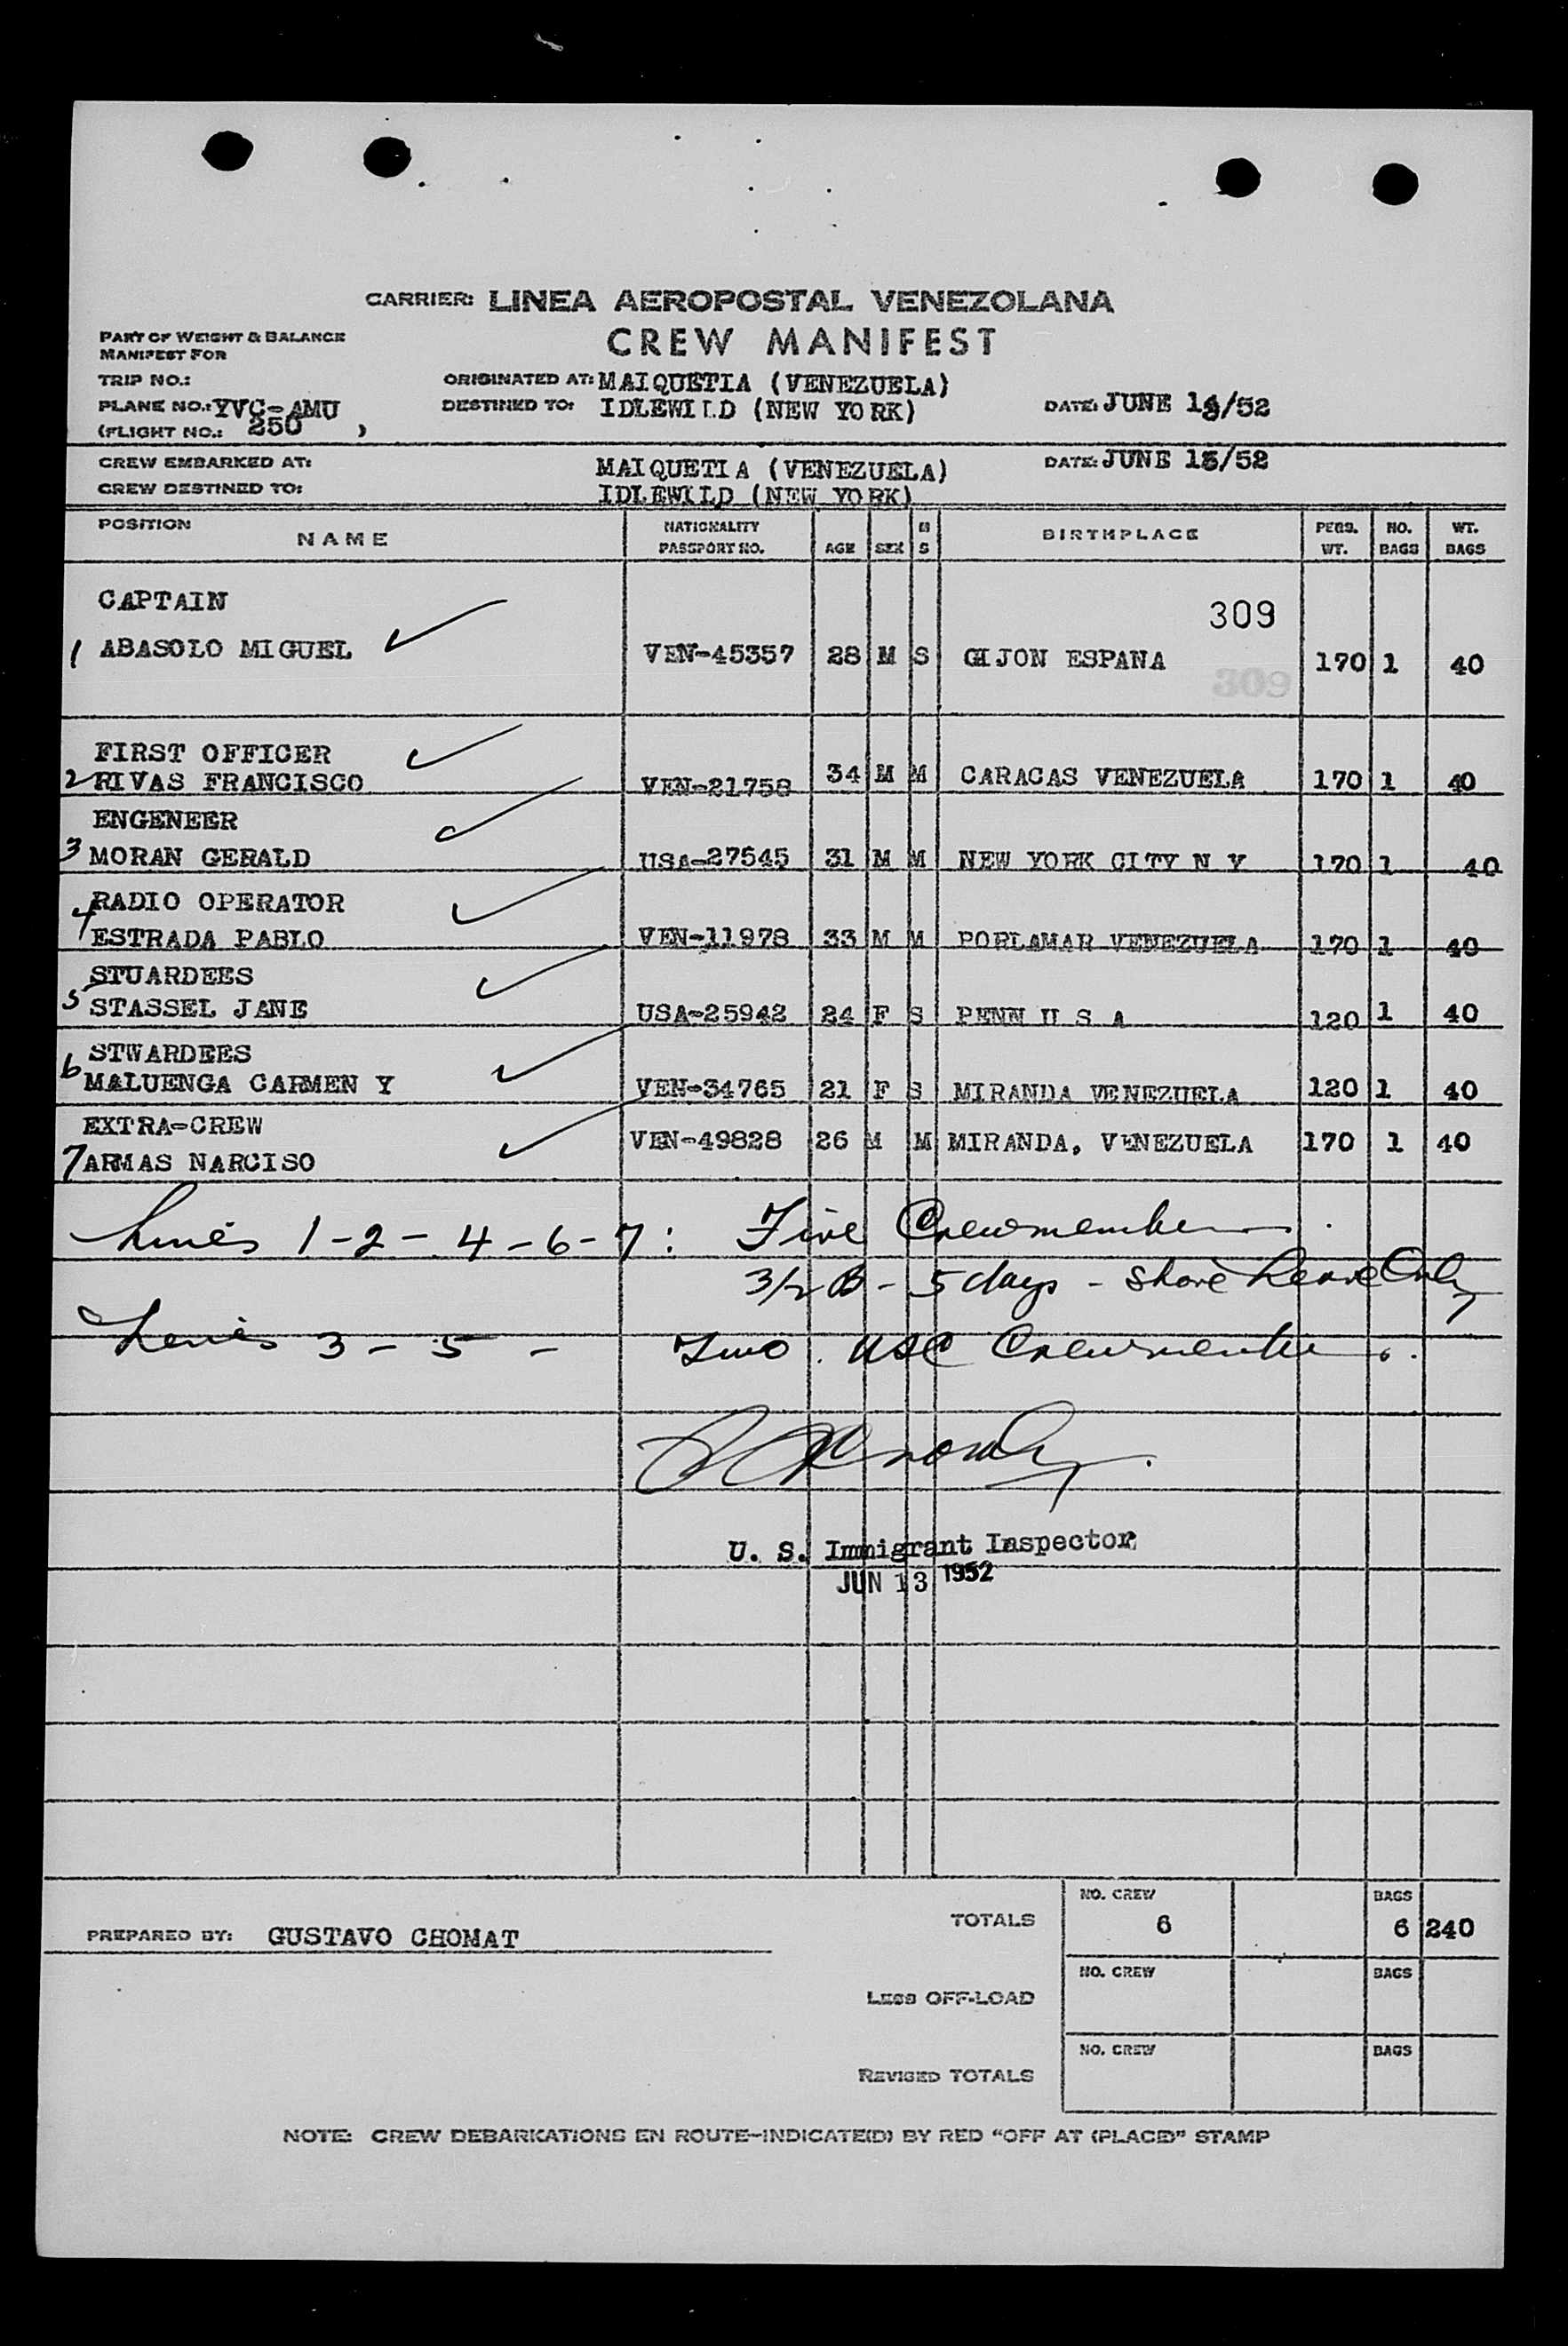 CARRIER: LINEA AEROPOSTAL VENEZOLANA
CREW MANIFEST
PART OF WEIGHT & BALANCE
MANIFEST FOR
TRIP NO.:
ORIGINATED AT: MAIQUETIA (VENEZUELA)
PLANE NO.: YVC-AMU
DESTINED TO: IDLEWILD (NEW YORK)
DATE: JUNE /52
(FLIGHT NO.: 250 )
CREW EMBARKED AT: MAIQUETIA (VENEZUELA)
DATE: JUNE /52
CREW DESTINED TO: IDLEWILD (NEW YORK)
POSITION NAME NATIONALITY PASSPORT NO. AGE SEX M S BIRTHPLACE PERS. WT. NO. BAGS WT. BAGS
CAPTAIN
309
1 ABASOLO MIGUEL VEN-45357 28 M S GIJON ESPANA 170 1 40
309
FIRST OFFICER
2 RIVAS FRANCISCO VEN-21758 34 M M CARACAS VENEZUELA 170 1 40
ENGENEER
3 MORAN GERALD USA-27545 31 M M NEW YORK CITY N Y 170 1 40
RADIO OPERATOR
4 ESTRADA PABLO VEN-11978 33 M M PORLAMAR VENEZUELA 170 1 40
STUARDEES
5 STASSEL JANE USA-25942 24 F S PENN U S A 120 1 40
STWARDEES
6 MALUENGA CARMEN Y VEN-34765 21 F S MIRANDA VENEZUELA 120 1 40
EXTRA-CREW
7 ARMAS NARCISO VEN-49828 26 M M MIRANDA, VENEZUELA 170 1 40
Lines 1-2-4-6-7: Five Crewmembers.
3/2 B - 5 days - Shore Leave Only
Lines 3-5 - Two USC Crewmembers.
U. S. Immigrant Inspector
JUN 13 1952
PREPARED BY: GUSTAVO CHOMAT
TOTALS NO. CREW 6 BAGS 6 240
LESS OFF-LOAD NO. CREW BAGS
REVISED TOTALS NO. CREW BAGS
NOTE: CREW DEBARKATIONS EN ROUTE-INDICATE(D) BY RED "OFF AT (PLACE)" STAMP